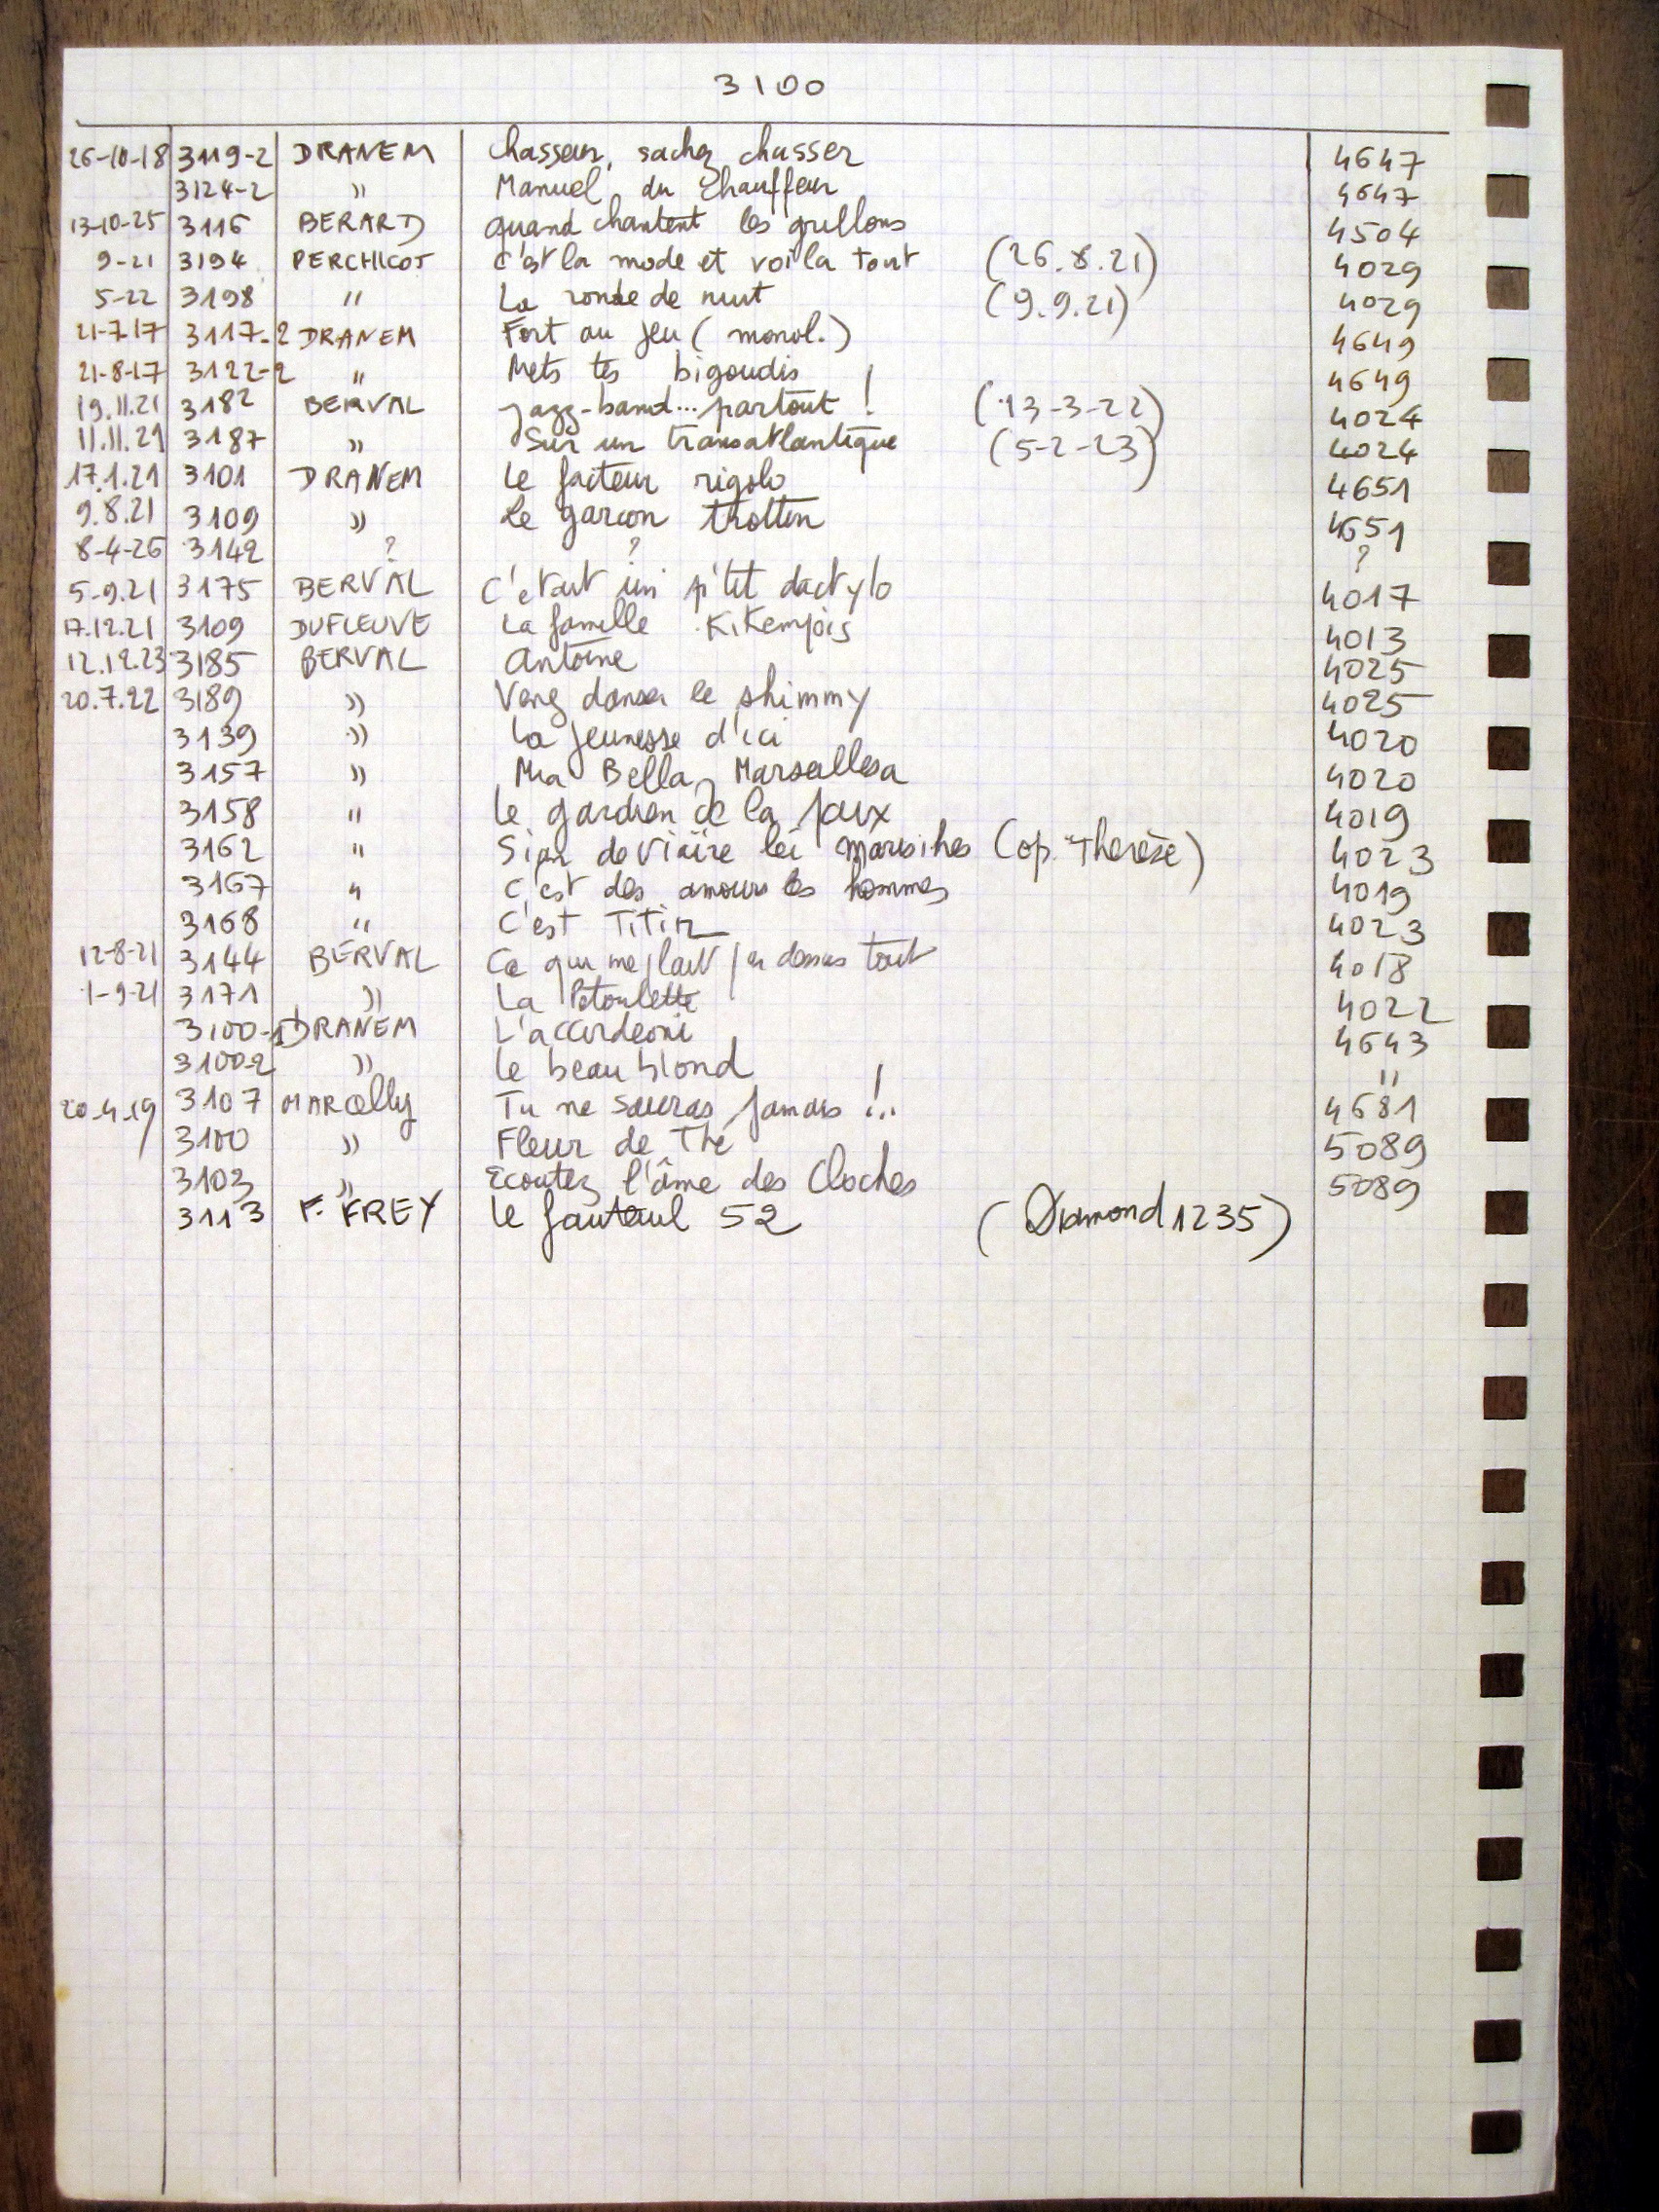 3100
26-10-18 3119-2 DRANEM Chasseur, sachez chasser 4647
3124-2 " Manuel du Chauffeur 4647
13-10-25 3116 BERARD quand chantent les grillons 4504
9-21 3194 PERCHICOT C'est la mode et voila tout (26.8.21) 4029
5-22 3198 " La ronde de nuit (9.9.21) 4029
21-7-17 3117-2 DRANEM Fort au jeu (monol.) 4649
21-8-17 3122-2 " Mets tes bigoudis 4649
19.11.21 3182 BERVAL Jazz-band... partout ! (13-3-22) 4024
11.11.21 3187 " Sur un transatlantique (5-2-23) 4024
17.1.21 3101 DRANEM Le facteur rigolo 4651
9.8.21 3109 " Le garcon trottin 4651
8-4-26 3142 ? ? ?
5-9.21 3175 BERVAL C'etait un p'tit dactylo 4017
17.12.21 3109 DUFLEUVE La famille Kikempois 4013
12.12.23 3185 BERVAL Antoine 4025
20.7.22 3189 " Venez danser le shimmy 4025
3139 " La jeunesse d'ici 4020
3157 " Mia Bella Marseillesa 4020
3158 " Le gardien de la paix 4019
3162 " de lei (op. "Therèse) 4023
3167 " C'est des amours les hommes 4019
3168 " C'est Titin 4023
12-8-21 3144 BERVAL Ce qui me plait par dessus tout 4018
1-9-21 3171 " La Petoulette 4022
3100-1 DRANEM L'accordeoni 4643
3100-2 " Le beau blond "
20-4-19 3107 MARCelly Tu ne sauras jamais !.. 4681
3100 " Fleur de Thé 5089
3103 " Ecoutez l'âme des Cloches 5089
3113 F. FREY Le fauteuil 52 (Diamond 1235)